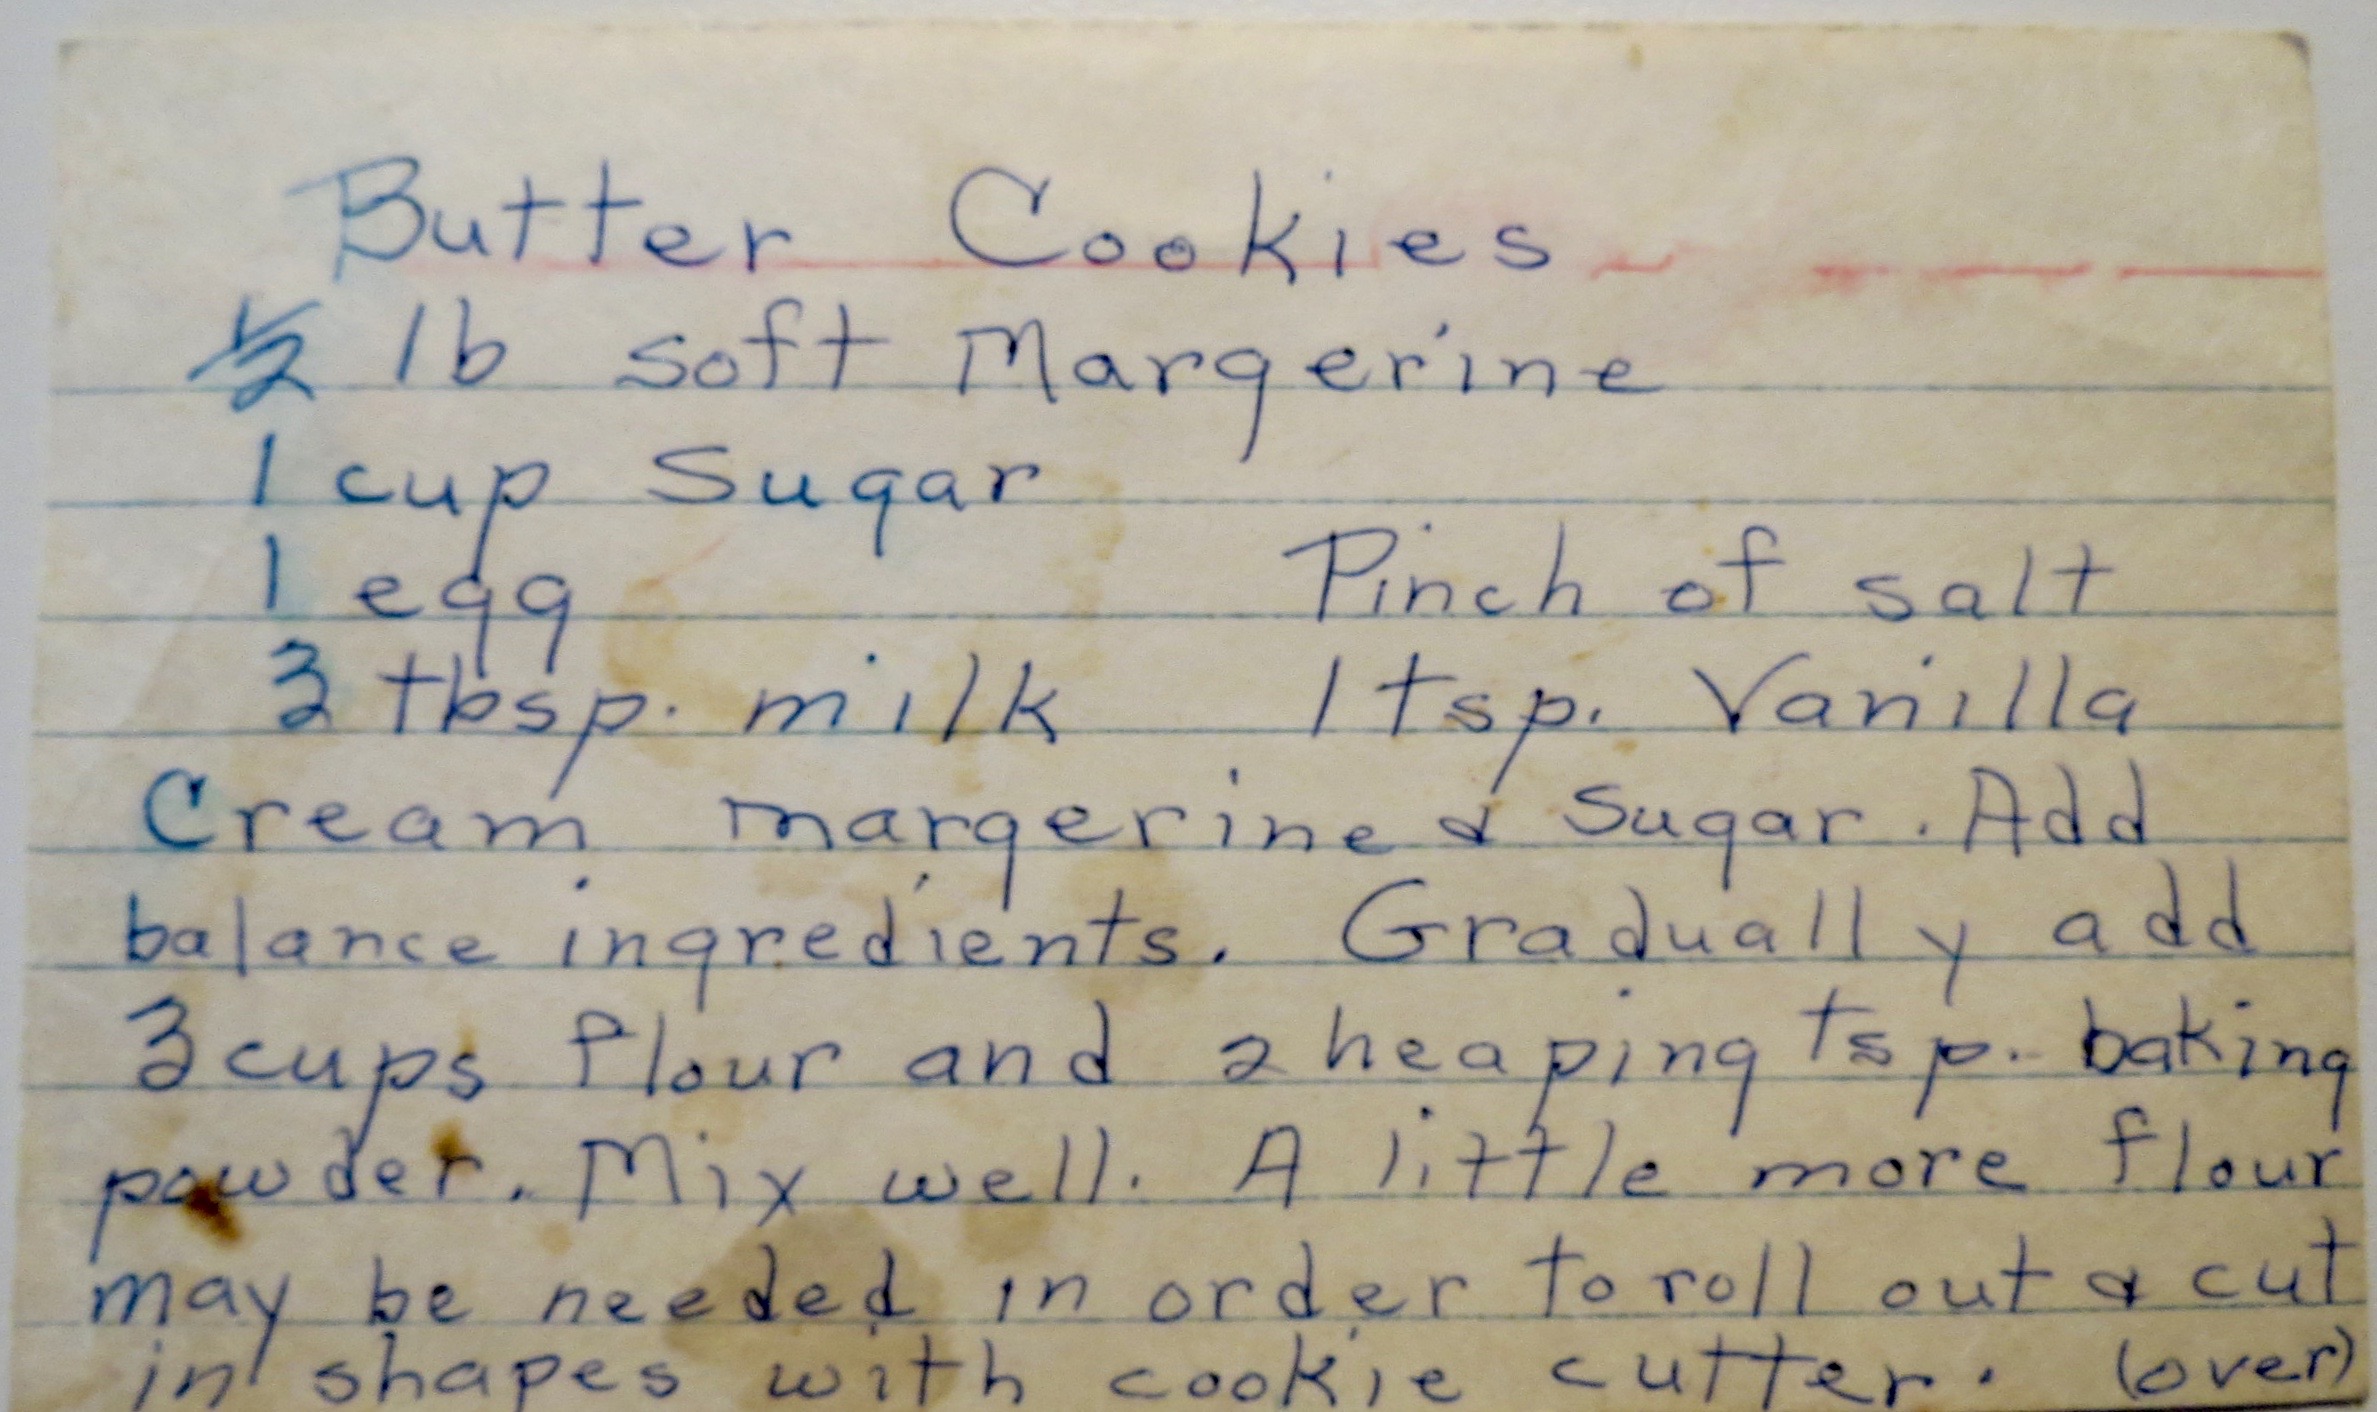 Butter Cookies
½ lb soft Margerine
1 cup Sugar
1 egg Pinch of salt
3 tbsp. milk 1 tsp. Vanilla
Cream margerine & Sugar. Add
balance ingredients. Gradually add
3 cups flour and 2 heaping tsp. baking
powder. Mix well. A little more flour
may be needed in order to roll out & cut
in shapes with cookie cutter. (over)